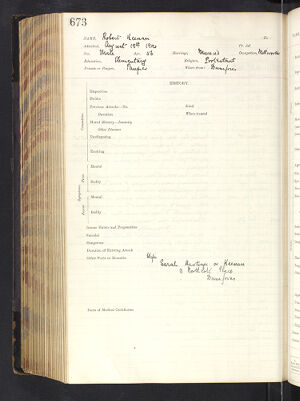 673
NAME, Robert Keenan No.
Admitted, August 13th 1900 Pr. Ad.
Sex, Male Age, 56 Marriage, Married Occupation, Millworker
Education, Elementary Religion, Protestant
Private or Pauper, Pauper Where from? Dumfries
HISTORY.
Disposition
Habits
Previous Attacks—No. Kind
Duration Where treated
Mental History—Insanity
Other Diseases
Predisposing
Exciting
Mental
Bodily
Mental
Bodily
Insane Habits and Propensities
Suicidal
Dangerous
Duration of Existing Attack
Other Facts or Remarks Wife
Sarah or Keenan
Dumfries
Facts of Medical Certificates